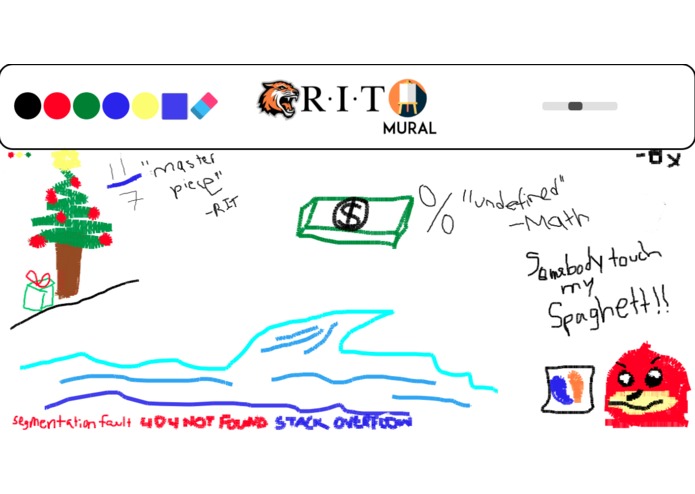 R·I·T
MURAL
11
7
"master
piece"
-RIT
$
0/0 "undefined"
-Math
Somebody touch
my
Spaghett!!
segmentation fault 404 NOT FOUND STACK OVERFLOW